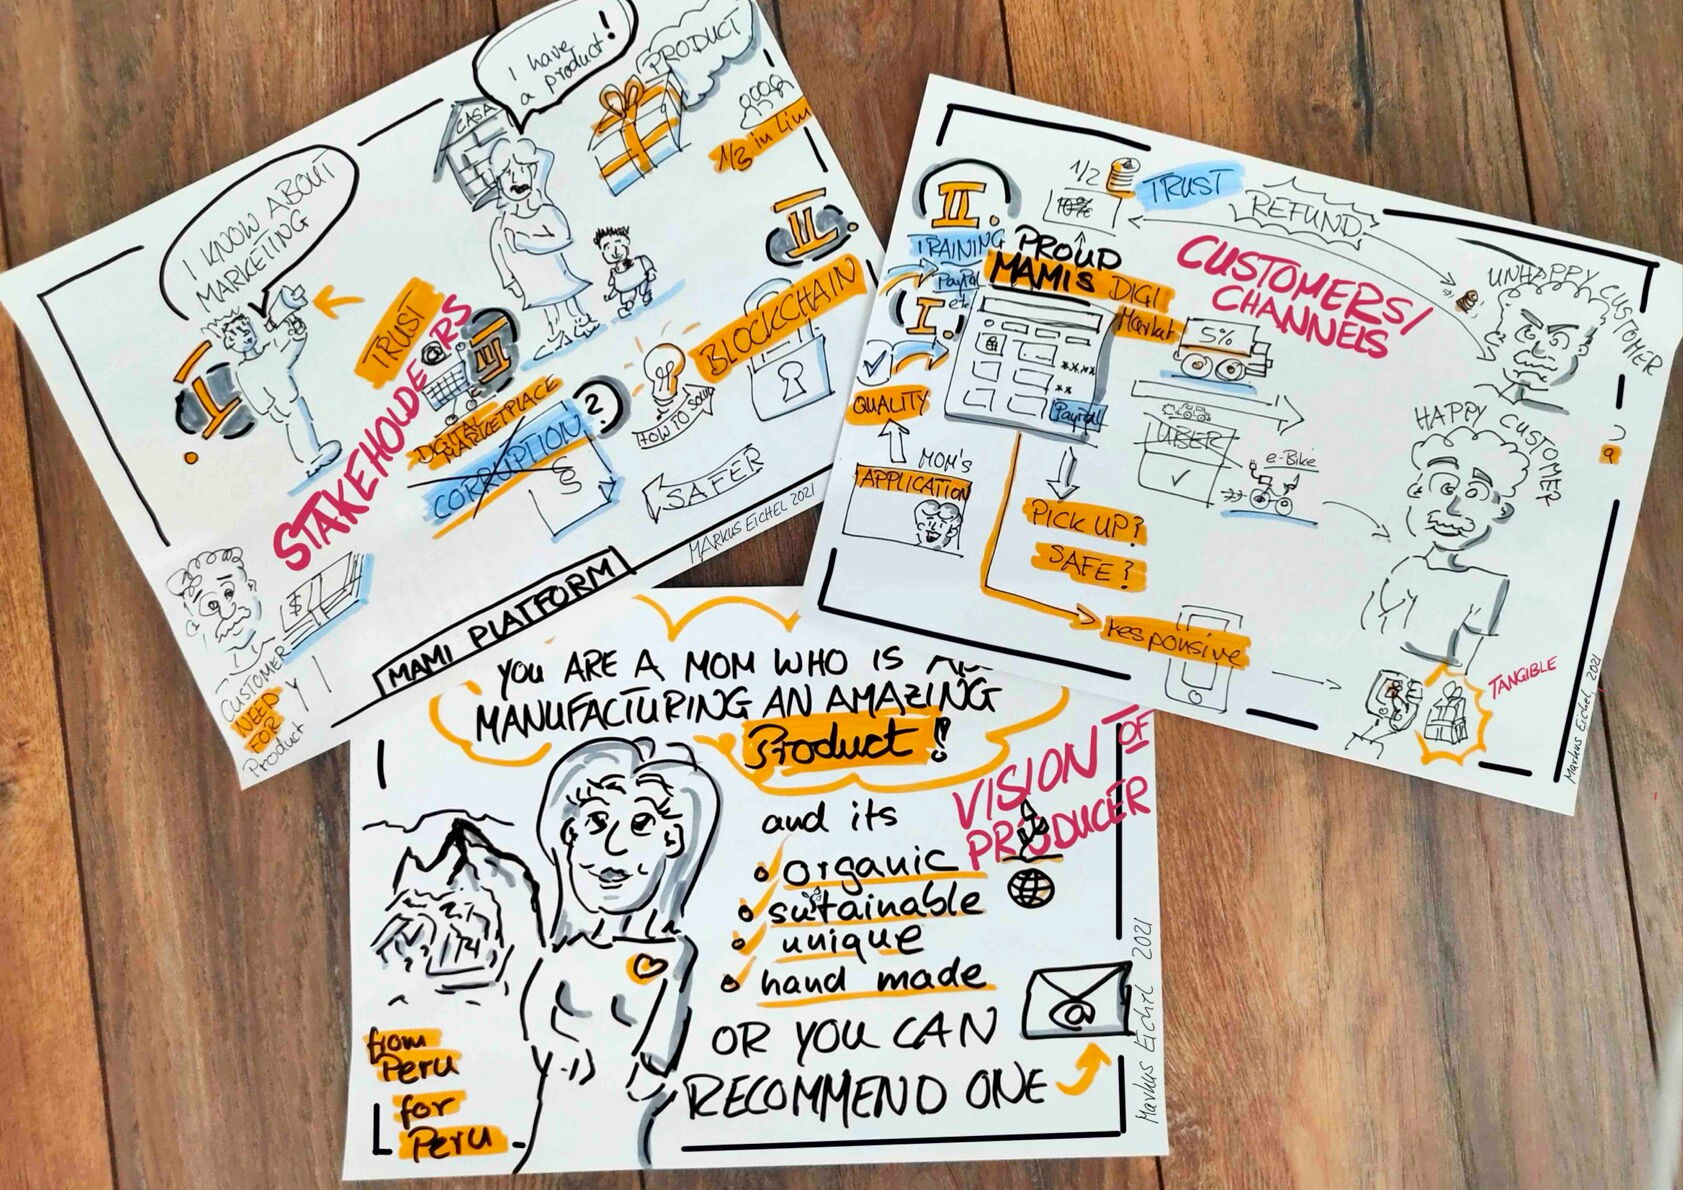 I have
a product!
PRODUCT
CASA
1/3 in Lim
I KNOW ABOUT
MARKETING
TRUST
STAKEHOLDERS
I.
II.
III
BLOCKCHAIN
DIGITAL
MARKETPLACE
CORRUPTION
?
HOW TO SOLVE
§
SAFER
MARKUS EICHEL 2021
$
CUSTOMER
NEED
FOR
Product
MAMI PLATFORM
II.
1/2
10%
TRUST
REFUND
TRAINING
PROUD
MAMIS
DIGI
Market
PayPal
etc
I.
**.***
**
PayPal
QUALITY
MOM'S
APPLICATION
CUSTOMERS/
CHANNELS
5%
UBER
e-Bike
UNHAPPY CUSTOMER
HAPPY CUSTOMER
PICK UP?
SAFE?
responsive
TANGIBLE
Markus Eichel 2021
YOU ARE A MOM WHO IS
MANUFACTURING AN AMAZING
Product!
and its
organic
sutainable
unique
hand made
OR YOU CAN
RECOMMEND ONE
@
VISION OF
PRODUCER
from
Peru
for
Peru
Markus Eichel 2021